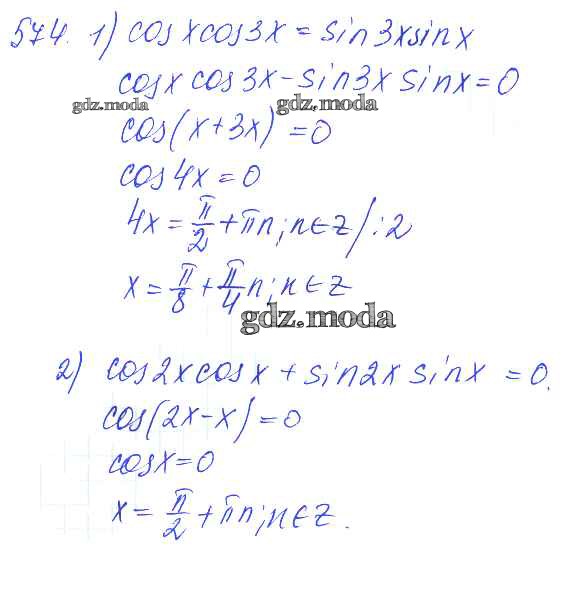 574. 1) cos x cos 3x = sin 3x sin x
cos x cos 3x - sin 3x sin x = 0
gdz.moda gdz.moda
cos(x + 3x) = 0
cos 4x = 0
4x = π/2 + πn; n ∈ Z / : 2
x = π/8 + π/4 n; n ∈ Z
gdz.moda
2) cos 2x cos x + sin 2x sin x = 0.
cos(2x - x) = 0
cos x = 0
x = π/2 + πn; n ∈ Z.